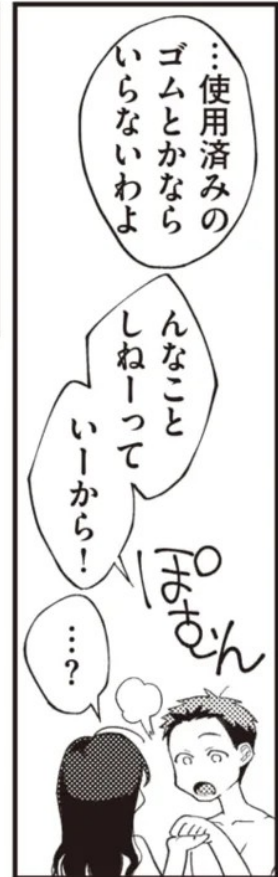 …使用済みの
ゴムとかなら
いらないわよ
んなこと
しねーって
いーから!
ぽむん
…?